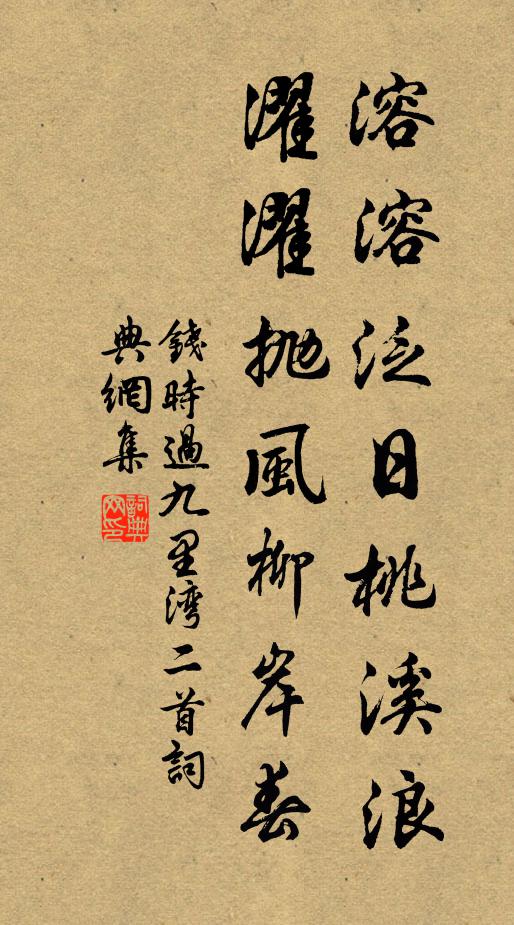 溶溶泛日桃溪浪
濯濯拋風柳岸春
錢時過九里湾二首詞
典網集
詞典
网印